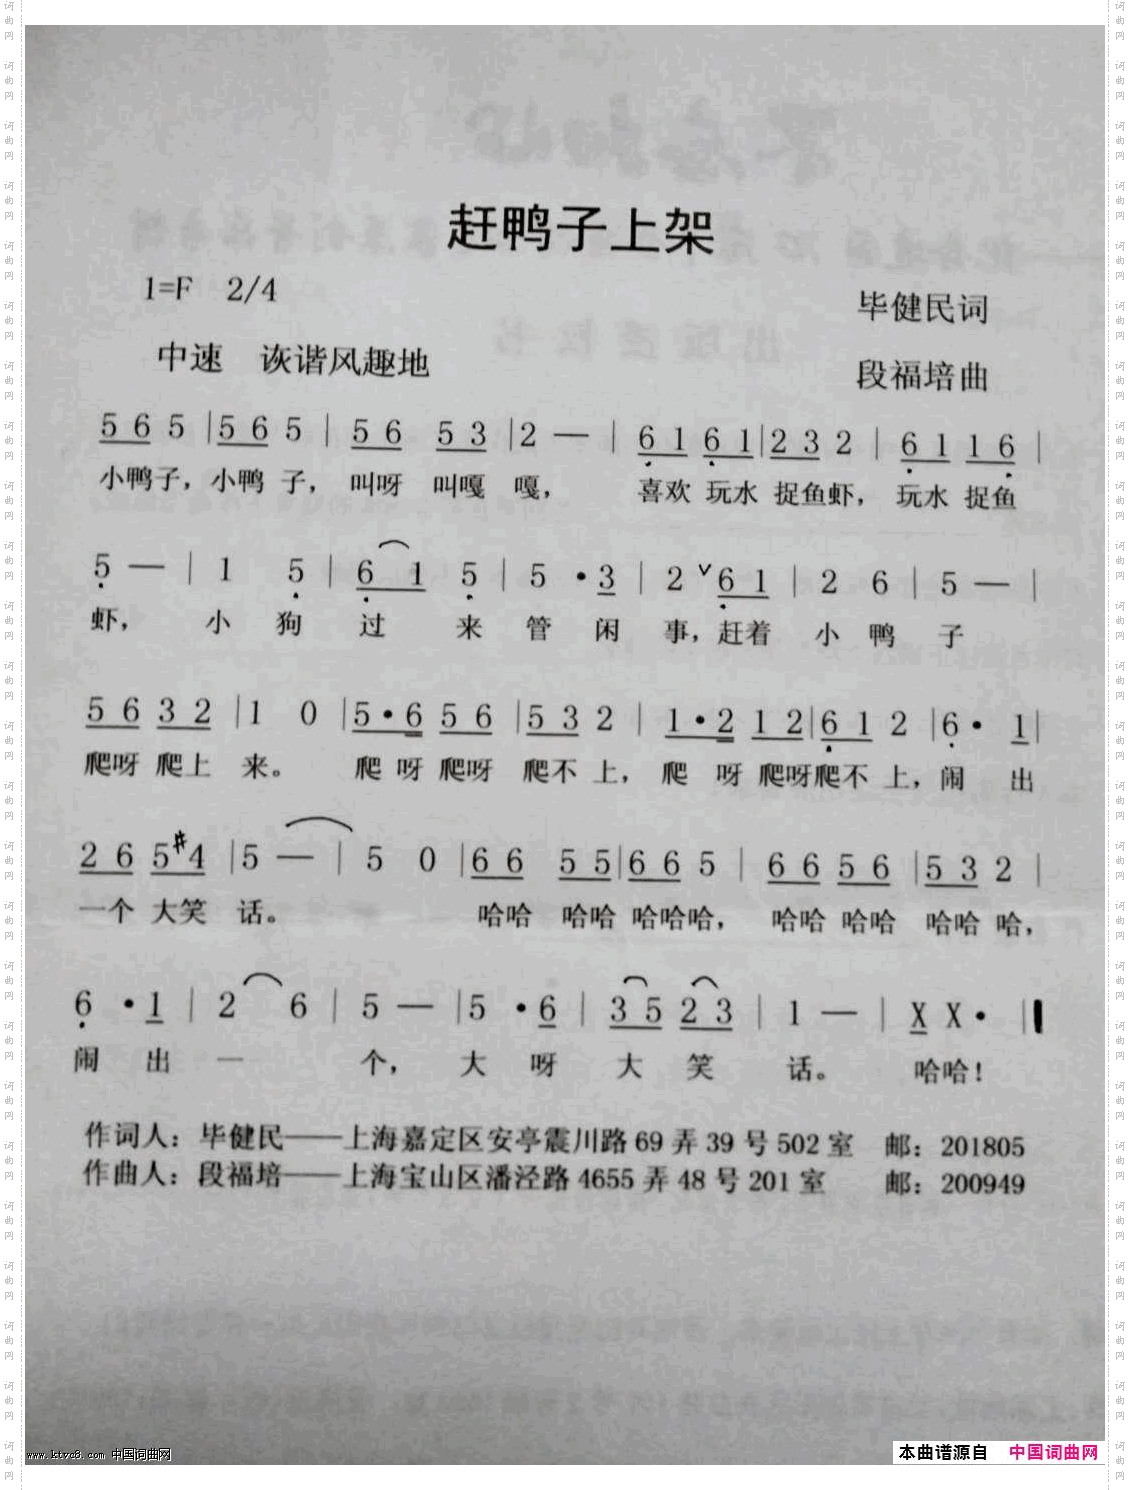 赶鸭子上架
1=F 2/4
毕健民词
中速 诙谐风趣地
段福培曲
5 6 5 | 5 6 5 | 5 6 5 3 | 2 — | 6 1 6 1 | 2 3 2 | 6 1 1 6 |
小鸭子，小鸭 子， 叫呀 叫嘎 嘎， 喜欢 玩水 捉鱼虾， 玩水 捉鱼
5 — | 1 5 | 6 1 5 | 5 · 3 | 2 ˅ 6 1 | 2 6 | 5 — |
虾， 小 狗 过 来 管 闲 事，赶着 小 鸭 子
5 6 3 2 | 1 0 | 5 · 6 5 6 | 5 3 2 | 1 · 2 1 2 | 6 1 2 | 6 · 1 |
爬呀 爬上 来。 爬 呀 爬呀 爬不 上， 爬 呀 爬呀爬不 上，闹 出
2 6 5 #4 | 5 — | 5 0 | 6 6 5 5 | 6 6 5 | 6 6 5 6 | 5 3 2 |
一个 大笑 话。 哈哈 哈哈 哈哈哈， 哈哈 哈哈 哈哈 哈，
6 · 1 | 2 6 | 5 — | 5 · 6 | 3 5 2 3 | 1 — | X X · ‖
闹 出 一 个， 大 呀 大 笑 话。 哈哈！
作词人：毕健民——上海嘉定区安亭震川路 69 弄 39 号 502 室 邮：201805
作曲人：段福培——上海宝山区潘泾路 4655 弄 48 号 201 室 邮：200949
www.ktvc8.com 中国词曲网
本曲谱源自 中国词曲网